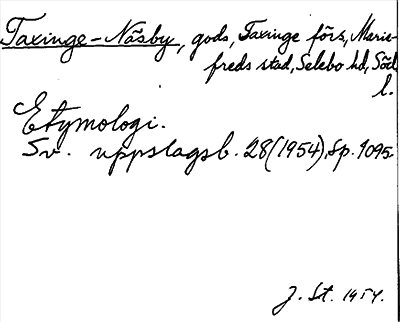 Taxinge-Näsby, gods, Taxinge förs, Marie-
freds stad, Selebo hd, Söd
l.
Etymologi.
Sv. uppslagsb. 28(1954), sp. 1095.
J. St. 1954.